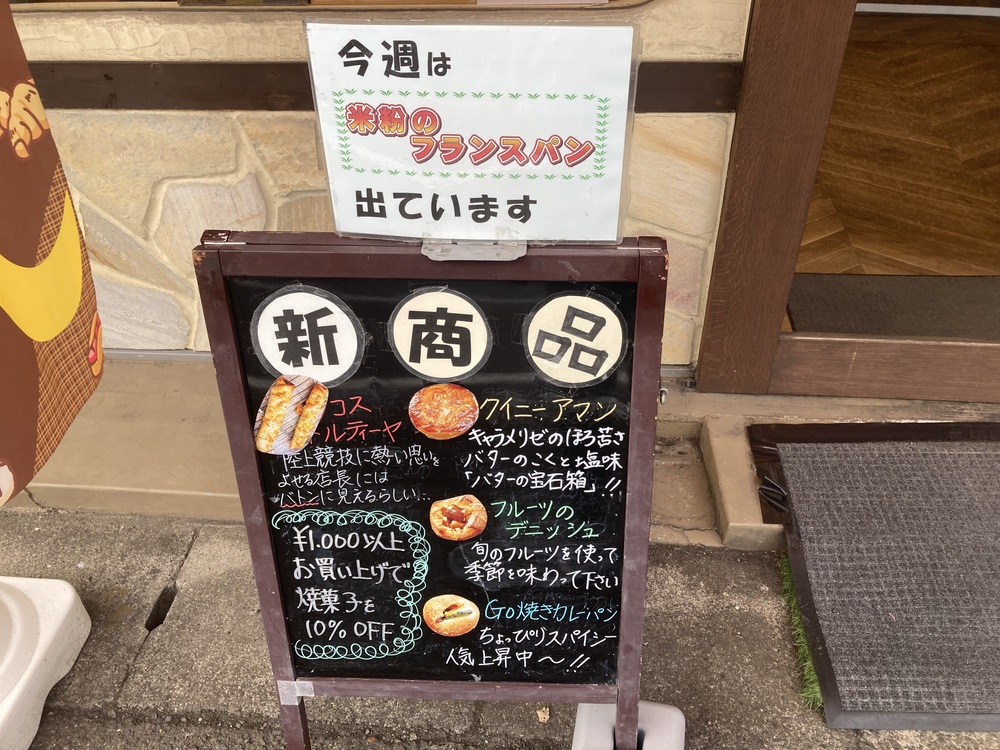 今週は
米粉の
フランスパン
出ています
新商品
コス
トルティーヤ
陸上競技に熱い思いを
よせる店長には
バトンに見えるらしい…
¥1.000以上
お買い上げで
焼菓子を
10% OFF
クイニーアマン
キャラメリゼのほろ苦さ
バターのこくと塩味
「バターの宝石箱」!!
フルーツの
デニッシュ
旬のフルーツを使って
季節を味わって下さい
Go焼きカレーパン
ちょっぴりスパイシー
人気上昇中〜!!